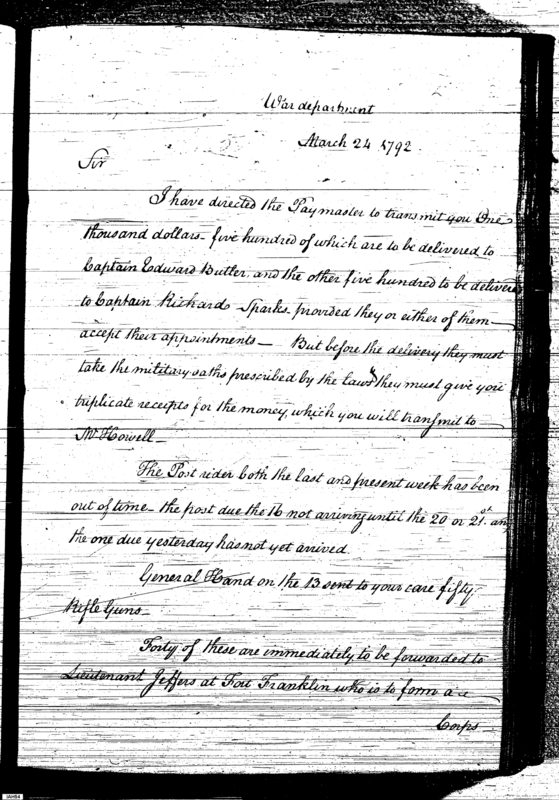 War department
March 24 1792.
Sir
I have directed the Paymaster to transmit you One
thousand dollars – five hundred of which are to be delivered to
Captain Edward Butler, and the other five hundred to be delivered
to Captain Richard Sparks – provided they or either of them –
accept their appointments – But before the delivery they must
take the military oaths prescribed by the law & they must give you
triplicate receipts for the money, which you will transmit to –
Mr Howell –
The Post rider both the last and present week has been
out of time – the post due the 16 not arriving until the 20 or 21st. an
the one due yesterday has not yet arrived.
General Hand on the 13 sent to your care fifty
Rifle Guns –
Forty of these are immediately to be forwarded to
Lieutenant Jeffers at Fort Franklin who is to form a
Corps